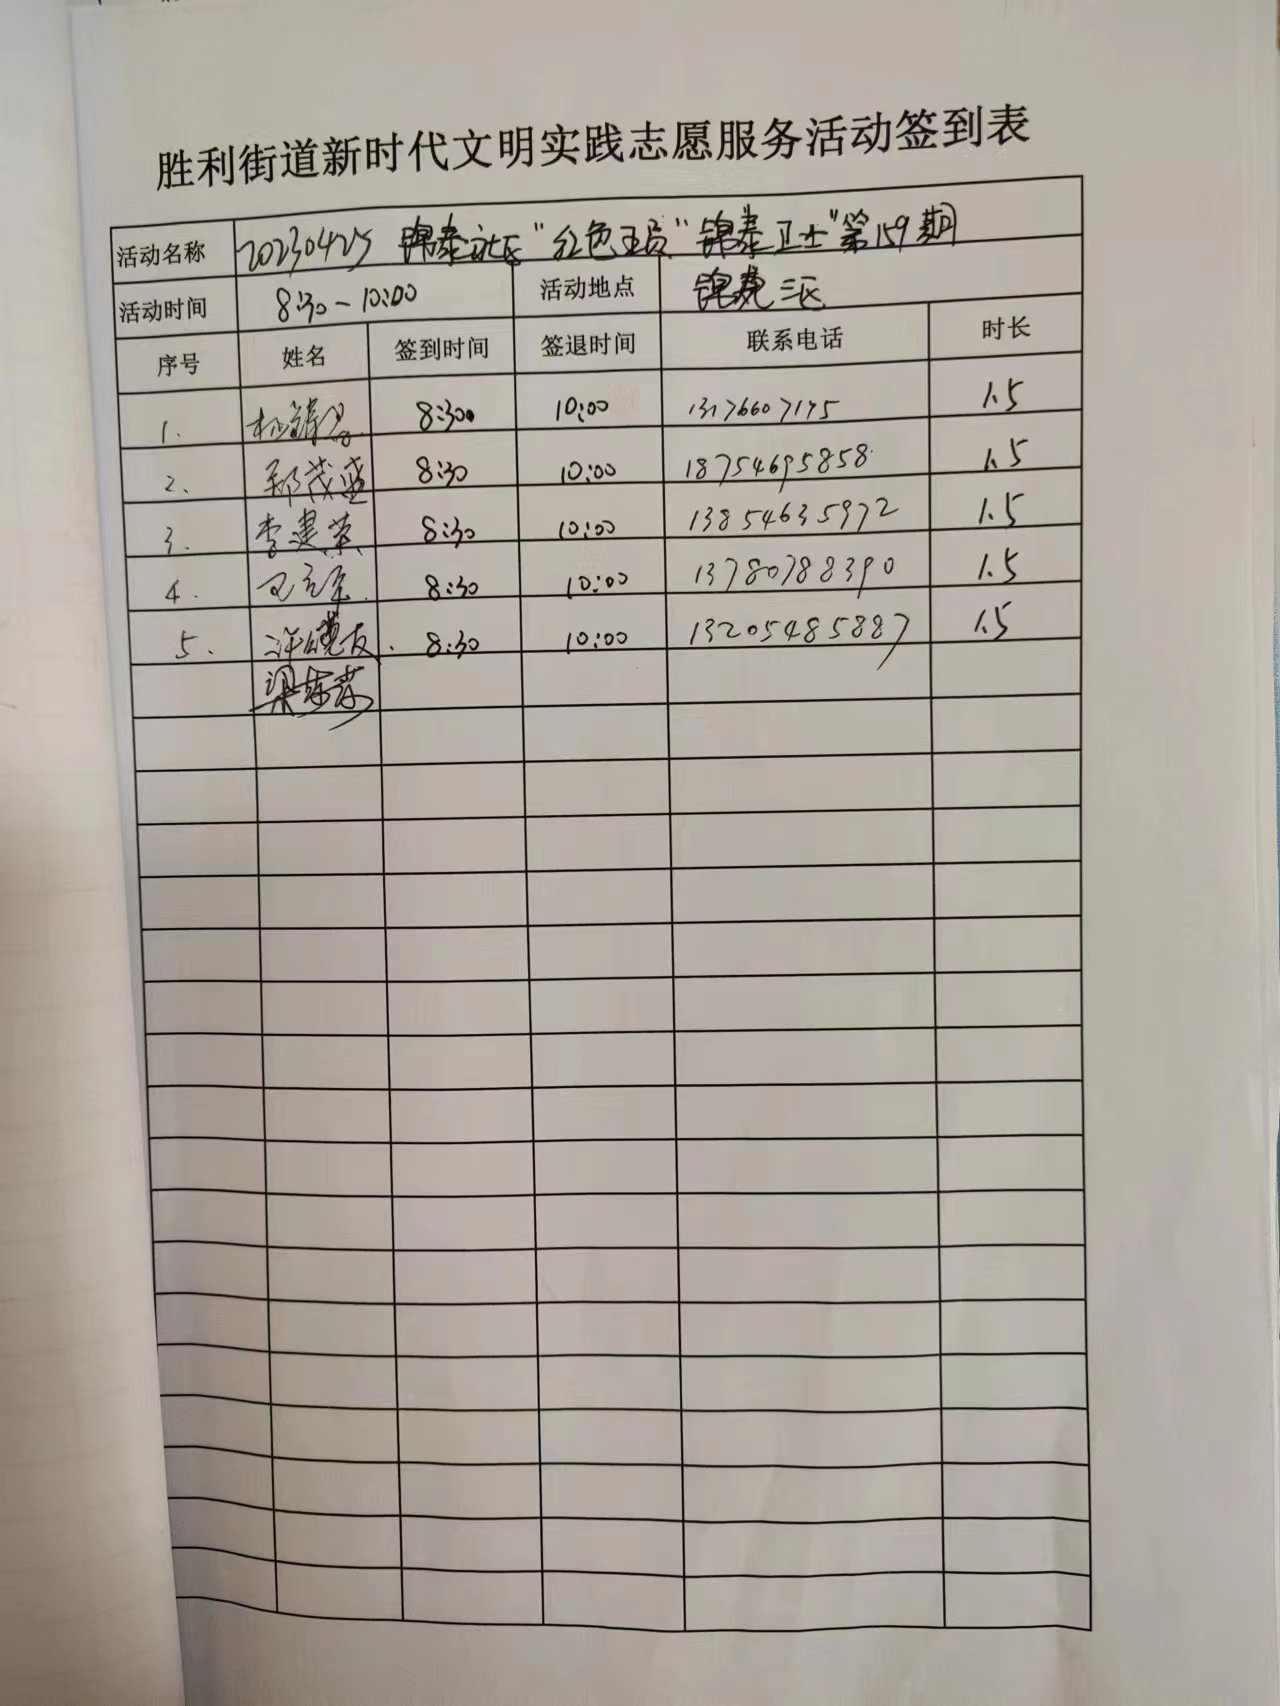 胜利街道新时代文明实践志愿服务活动签到表
活动名称 20230425 锦泰社区“红色 ”锦泰卫士“第159期
活动时间 8:30-10:00 活动地点 锦苑三区
序号 姓名 签到时间 签退时间 联系电话 时长
1. 8:30 10:00 13176607175 1.5
2. 郑茂盛 8:30 10:00 18754695858 1.5
3. 李建英 8:30 10:00 13854635972 1.5
4. 8:30 10:00 13780788390 1.5
5. 8:30 10:00 13205485887 1.5
梁